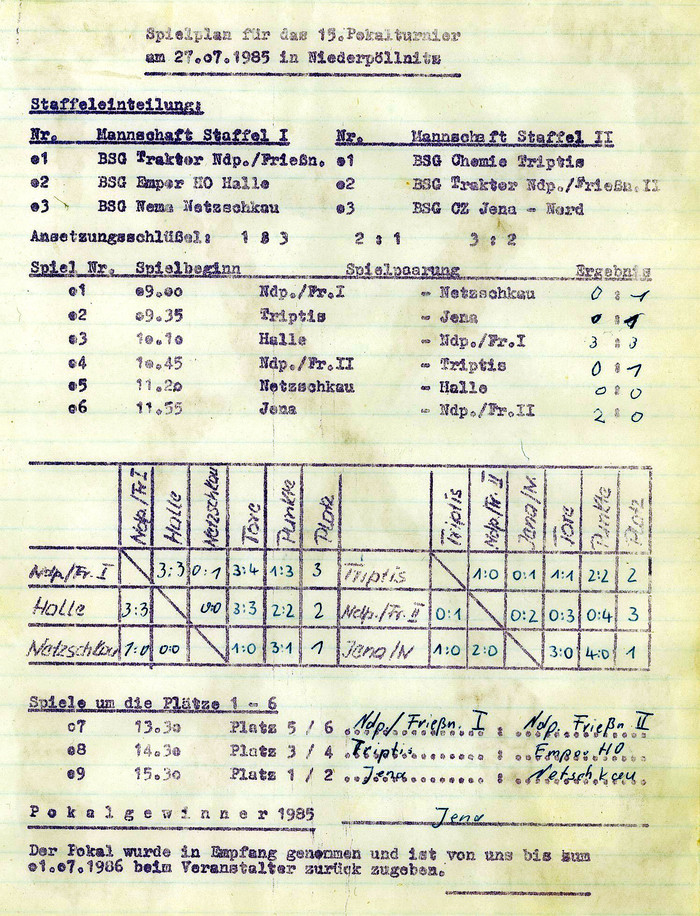 Spielplan für das 15.Pokalturnier
am 27.o7.1985 in Niederpöllnitz
Staffeleinteilung:
Nr. Mannschaft Staffel I Nr. Mannschaft Staffel II
o1 BSG Traktor Ndp./Frießn. o1 BSG Chemie Triptis
o2 BSG Empor HO Halle o2 BSG Traktor Ndp./Frießn.II
o3 BSG Nema Netzschkau o3 BSG CZ Jena - Nord
Ansetzungsschlüßel: 1 : 3 2 : 1 3 : 2
Spiel Nr. Spielbeginn Spielpaarung Ergebnis
o1 o9.oo Ndp./Fr.I - Netzschkau 0 : 1
o2 o9.35 Triptis - Jena 0 : 1
o3 1o.1o Halle - Ndp./Fr.I 3 : 3
o4 1o.45 Ndp./Fr.II - Triptis 0 : 1
o5 11.2o Netzschkau - Halle 0 : 0
o6 11.55 Jena - Ndp./Fr.II 2 : 0
Ndp./Fr I Halle Netzschkau Tore Punkte Platz Triptis Ndp./Fr. II Jena/N Tore Punkte Platz
Ndp./Fr. I 3:3 0:1 3:4 1:3 3 Triptis 1:0 0:1 1:1 2:2 2
Halle 3:3 0:0 3:3 2:2 2 Ndp./Fr. II 0:1 0:2 0:3 0:4 3
Netzschkau 1:0 0:0 1:0 3:1 1 Jena/N 1:0 2:0 3:0 4:0 1
Spiele um die Plätze 1 - 6
o7 13.3o Platz 5 / 6 Ndp./Frießn. I : Ndp. Frießn II
o8 14.3o Platz 3 / 4 Triptis : Empor HO
o9 15.3o Platz 1 / 2 Jena : Netschkau
P o k a l g e w i n n e r 1985 Jena
Der Pokal wurde in Empfang genommen und ist von uns bis zum
o1.o7.1986 beim Veranstalter zurück zugeben.